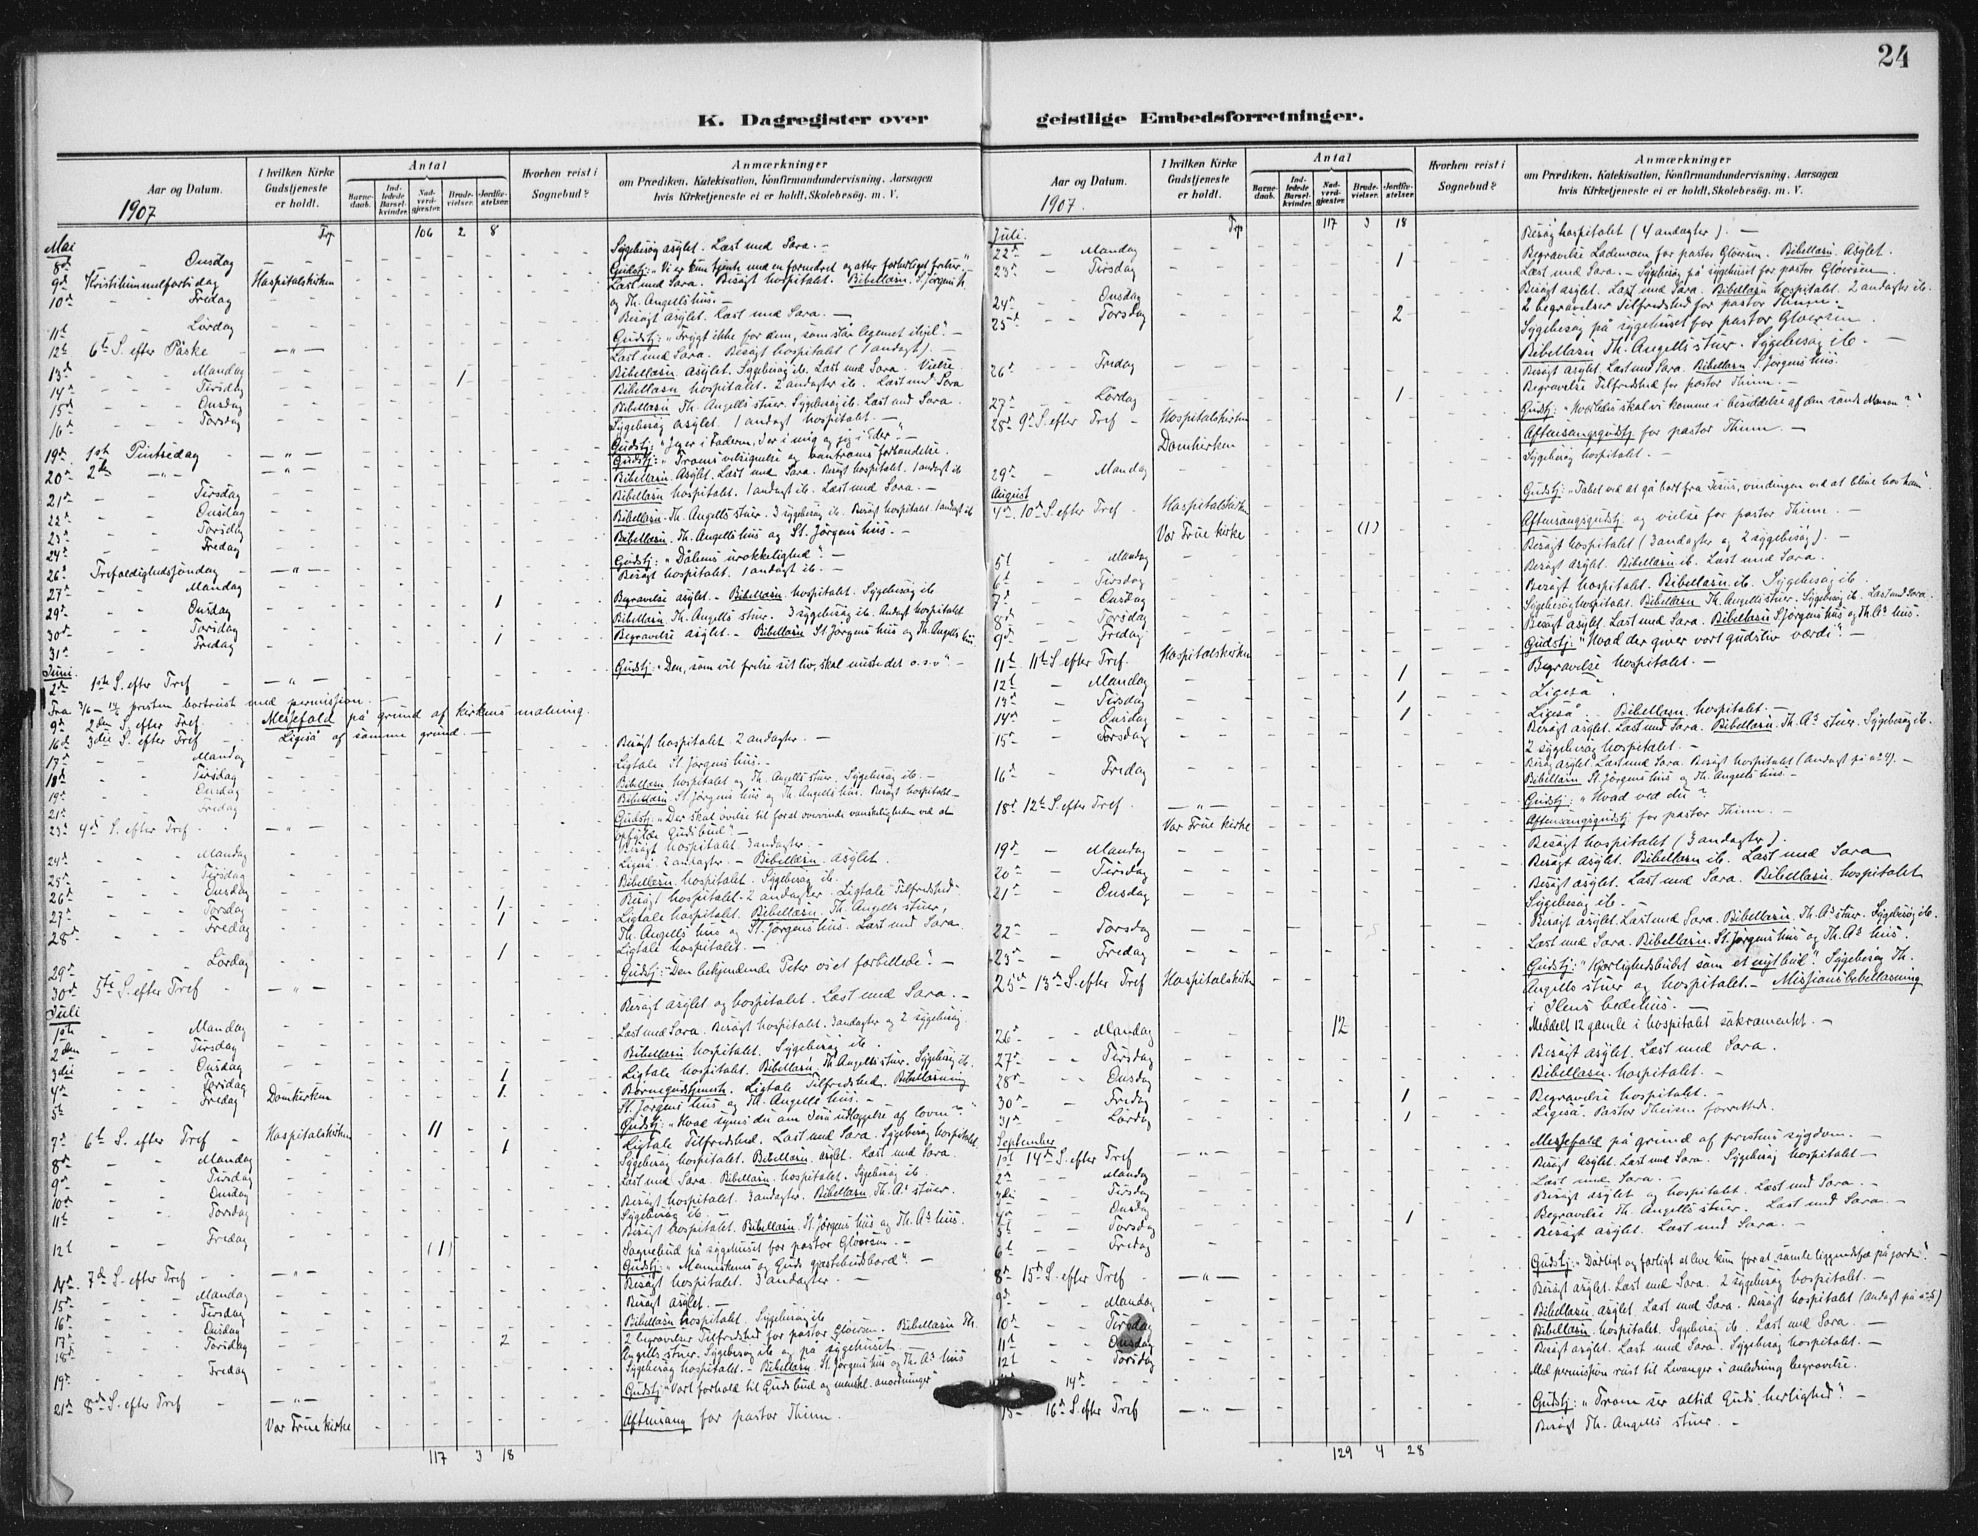 24
K. Dagregister over geistlige Embedsforretninger.
Aar og Datum.
1907
I hvilken Kirke Gudstjeneste er holdt.
Antal
Barnedaab.
Indledede Barselkvinder.
Nadverdgjæster.
Brudevielser.
Jordfæstelser.
Hvorhen reist i Sognebud?
Anmærkninger
om Prædiken, Katekisation, Konfirmandundervisning, Aarsagen
hvis Kirketjeneste ei er holdt, Skolebesøg, m. V.
Trp 106 2 8
Mai
8d Onsdag Sygebesøg asylet. Læst med Sara. —
9d Kristihimmelfartsdag Hospitalskirken
10d Fredag Læst med Sara. Besøgt hospitalet. Bibellæsn. St Jørgens h.
og Th. Angells hus. —
11t Lørdag Besøgt asylet. Læst med Sara. —
12t 6te S. efter Påske — " — Gudstj: "Frygt ikke for dem, som slår legemet ihjel". —
13d Mandag Læst med Sara. Besøgt hospitalet (1 andagt). —
14d Tirsdag 1 Bibellæsn. asylet. Sygebesøg ib. Læst med Sara. Vielse
15d Onsdag Bibellæsn. hospitalet. 2 andagter ib. Læst med Sara
16d Torsdag Bibellæsn. Th. Angells stuer. Sygebesøg ib. Læst med Sara.
Sygebesøg asylet. 1 andagt hospitalet. —
19d 1ste Pintsedag — " — Gudstj: "Jeg er i Faderen, I er i mig og jeg i Eder". —
20d 2den — " — — " — Gudstj: "Troens velsignelse og vantroens forbandelse.
21d Tirsdag Bibellæsn. Asylet. Læst med Sara. Besøgt hospitalet. 1 andagt ib
22d Onsdag Bibellæsn. hospitalet. 1 andagt ib. Læst med Sara. —
23d Torsdag Bibellæsn. Th. Angells stuer. 3 sygebesøg ib. Besøgt hospitalet. 1 andagt ib
24d Fredag Bibellæsn. Th. Angells hus og St. Jørgens hus. —
26d Trefoldighedssøndag — " — Gudstj: "Dåbens urokkelighed". —
27d Mandag Besøgt hospitalet. 1 andagt ib. —
29d Onsdag 1 Begravelse asylet. — Bibellæsn. hospitalet. Sygebesøg ib
30d Torsdag Bibellæsn. Th. Angells stuer. 3 sygebesøg ib. Andagt hospitalet
31t Fredag 1 Begravelse asylet. — Bibellæsn. St Jørgens hus og Th. Angells hus.
Juni.
2d 1ste S. efter Tref — " — Gudstj: "Den, som vil frelse sit liv, skal miste det o.s.v". —
Fra 3/6 – presten bortreist med permission.
9d 2den S. efter Tref Messefald på grund af kirkens maling.
16d 3die S. efter Tref Ligeså af samme grund. —
17d Mandag Besøgt hospitalet. 2 andagter. —
18d Tirsdag Ligtale St. Jørgens hus. —
19d Onsdag Bibellæsn. hospitalet og Th. Angells stuer. Sygebesøg ib. —
21d Fredag Bibellæsn. St Jørgens hus og Th. Angells hus. Besøgt hospitalet. —
23d 4d S. efter Tref — " — Gudstj: "Der skal øvelse til for at overvinde vanskeligheden ved at
opfylde Guds bud". —
24d Mandag Besøgt hospitalet. 3 andagter. —
25d Tirsdag Ligeså. 2 andagter. — Bibellæsn. asylet.
26d Onsdag Bibellæsn. hospitalet. Sygebesøg ib.
27d Torsdag 1 Besøgt hospitalet. 2 andagter. Ligtale "Tilfredshed"
28d Fredag 1 Ligtale hospitalet. Bibellæsn. Th. Angells stuer,
Th. Angells hus og St. Jørgens hus. Læst med Sara.
29d Lørdag 1 Ligtale hospitalet. —
30d 5te S. efter Tref — " — Gudstj: "Den bekjendende Peter os et forbillede". —
Juli
1ste Mandag Besøgt asylet og hospitalet. Læst med Sara. —
2den Tirsdag Læst med Sara. Besøgt hospitalet. 3 andagter og 2 sygebesøg.
3die Onsdag Bibellæsn. hospitalet. Sygebesøg ib.
4d Torsdag 1 Ligtale hospitalet. Bibellæsn. Th. Angells stuer. Sygebesøg ib.
5te Fredag Domkirken 1 Børnegudstjeneste. Ligtale Tilfredshed. Bibellæsning
St. Jørgens hus og Th. Angells hus. —
7d 6te S. efter Tref Hospitalskirken 11 Gudstj: "Hvad synes du om Jesu udlæggelse af loven". —
8d Mandag 1 Ligtale Tilfredshed. Læst med Sara. Sygebesøg hospitalet.
9d Tirsdag Sygebesøg hospitalet. Bibellæsn. asylet. Læst med Sara.
10d Onsdag Læst med Sara. Bibellæsn. hospitalet. Sygebesøg ib.
11t Torsdag Besøgt hospitalet. 3 andagter. Bibellæsn. Th. As stuer.
Sygebesøg ib. —
12t Fredag (1) Besøgt hospitalet. Bibellæsn. St Jørgens hus og Th. As hus.
Sognebud på sygehuset for pastor Gløersen. —
14d 7de S. efter Tref — " — Gudstj: "Menneskenes og Guds gjæstebudsbord". —
15d Mandag Besøgt hospitalet. 3 andagter. —
16d Tirsdag Besøgt asylet. —
17d Onsdag Bibellæsn. hospitalet. Sygebesøg ib
18d Torsdag 2 2 begravelser Tilfredshed for pastor Gløersen. Bibellæsn. Th.
Angells stuer. Sygebesøg ib og på sygehuset.
19d Fredag Sygebesøg hospitalet. — Bibellæsn. St. Jørgens hus og Th. As hus
21d 8de S. efter Tref — " — Gudstj: "Vort forhold til Guds bud og menskl. anordninger"
Vor Frue kirke Aftensang for pastor Thinn. —
117 3 18
Aar og Datum.
1907.
I hvilken Kirke Gudstjeneste er holdt.
Antal
Barnedaab.
Indledede Barselkvinder.
Nadverdgjæster.
Brudevielser.
Jordfæstelser.
Hvorhen reist i Sognebud?
Anmærkninger
om Prædiken, Katekisation, Konfirmandundervisning, Aarsagen
hvis Kirketjeneste ei er holdt, Skolebesøg, m. V.
Trp 117 3 18
Juli.
22d Mandag Besøg hospitalet (4 andagter). —
23d Tirsdag 1 Begravelse Lademoen for pastor Gløersen. Bibellæsn. Asylet.
Læst med Sara. — Sygebesøg på sygehuset for pastor Gløersen.
24d Onsdag Besøgt asylet. Læst med Sara. Bibellæsn. hospitalet. 2 andagter ib.
25d Torsdag 2 2 begravelser Tilfredshed for pastor Thinn. —
Sygebesøg på sygehuset for pastor Gløersen.
Bibellæsn. Th. Angells stuer. Sygebesøg ib. —
26d Fredag Besøgt asylet. Læst med Sara. Bibellæsn. St Jørgens hus.
27d Lørdag 1 Begravelse Tilfredshed for pastor Thinn. —
28d 9d S. efter Tref Hospitalskirken Gudstj: "Hvorledes skal vi komme i besiddelse af den sande Mamon?"
Domkirken Aftensangsgudstj for pastor Thinn. —
29d Mandag Sygebesøg hospitalet. —
August
4d 10d S. efter Tref Hospitalskirken Gudstj: "Tabet ved at gå bort fra Jesus, vindingen ved at blive hos ham".
Vor Frue kirke (1) Aftensangsgudstj og vielse for pastor Thinn. —
5t Mandag Besøgt hospitalet (3 andagter og 2 sygebesøg). —
6t Tirsdag Besøgt asylet. Bibellæsn ib. Læst med Sara.
7d Onsdag Besøgt hospitalet. Bibellæsn ib. Sygebesøg ib.
8d Torsdag Sygebesøg hospitalet. Bibellæsn. Th. Angells stuer. Sygebesøg ib. Læst med Sara.
9d Fredag Besøgt asylet. Læst med Sara. Bibellæsn St Jørgens hus og Th. As hus.
11t 11te S. efter Tref. Hospitalskirken Gudstj: "Hvad der giver vort gudsliv værdi". —
12t Mandag 1 Begravelse hospitalet. —
13d Tirsdag 1 Ligeså.
14d Onsdag 1 Ligeså. Bibellæsn. hospitalet. —
15d Torsdag Besøgt asylet. Læst med Sara. Bibellæsn. Th. As stuer. Sygebesøg ib.
2 sygebesøg hospitalet. —
16d Fredag Besøg asylet. Læst med Sara. Besøgt hospitalet (andagt på no 4). —
Bibellæsn St. Jørgens hus og Th. Angells hus. —
18d 12te S. efter Tref. — " — Gudstj: "Hvad ved du"?
Vor Frue kirke Aftensangsgudstj for pastor Thinn. —
19d Mandag Besøgt hospitalet (3 andagter).
20d Tirsdag Besøgt asylet. Bibellæsn ib. Læst med Sara
21d Onsdag Besøgt asylet. Læst med Sara. Bibellæsn. hospitalet
Sygebesøg ib. —
22d Torsdag Besøgt asylet. Læst med Sara. Bibellæsn. Th. As stuer. Sygebesøg ib.
23d Fredag Læst med Sara. Bibellæsn. St. Jørgens hus og Th. As hus.
25d 13d S. efter Tref Hospitalskirken Gudstj: "Kjærlighedsbudet som et nyt bud". Sygebesøg Th.
Angells stuer og hospitalet. — Missionsbibellæsning
i Ilens bedehus. —
26d Mandag 12 Meddelt 12 gamle i hospitalet sakramentet. —
27d Tirsdag Besøgt asylet. Læst med Sara.
28d Onsdag Bibellæsn. hospitalet. —
30d Fredag 1 Begravelse hospitalet. —
31t Lørdag 1 Ligeså. Pastor Theisen forrettede.
September
1st 14d S. efter Tref — " — Messefald på grund af prestens sygdom. —
2d Mandag Besøgt Asylet. Læst med Sara. Sygebesøg hospitalet —
3di Tirsdag Læst med Sara. —
4d Onsdag Besøgt asylet og hospitalet. Læst med Sara. —
5t Torsdag 1 Begravelse Th. Angells stuer. Læst med Sara. —
6t Fredag Besøgt asylet. Læst med Sara. —
8d 15d S. efter Tref — " — Gudstj: "Dårligt og farligt at leve kun for at samle liggendefæ på jorden". —
9d Mandag Besøgt asylet. Læst med Sara. 2 sygebesøg hospitalet. —
10d Tirsdag Bibellæsn. asylet. Læst med Sara. Besøgt hospitalet (andagt på no 5)
11t Onsdag Bibellæsn. hospitalet. Sygebesøg ib. Læst med Sara. —
12t Torsdag Besøgt asylet. Læst med Sara. Sygebesøg hospitalet. —
14d Med permission reist til Levanger i anledning begravelse.
15 16d S. efter Tref — " — Gudstj: "Troen ser altid Guds herlighed". —
Besøgt Th. Angells stuer. —
129 4 28